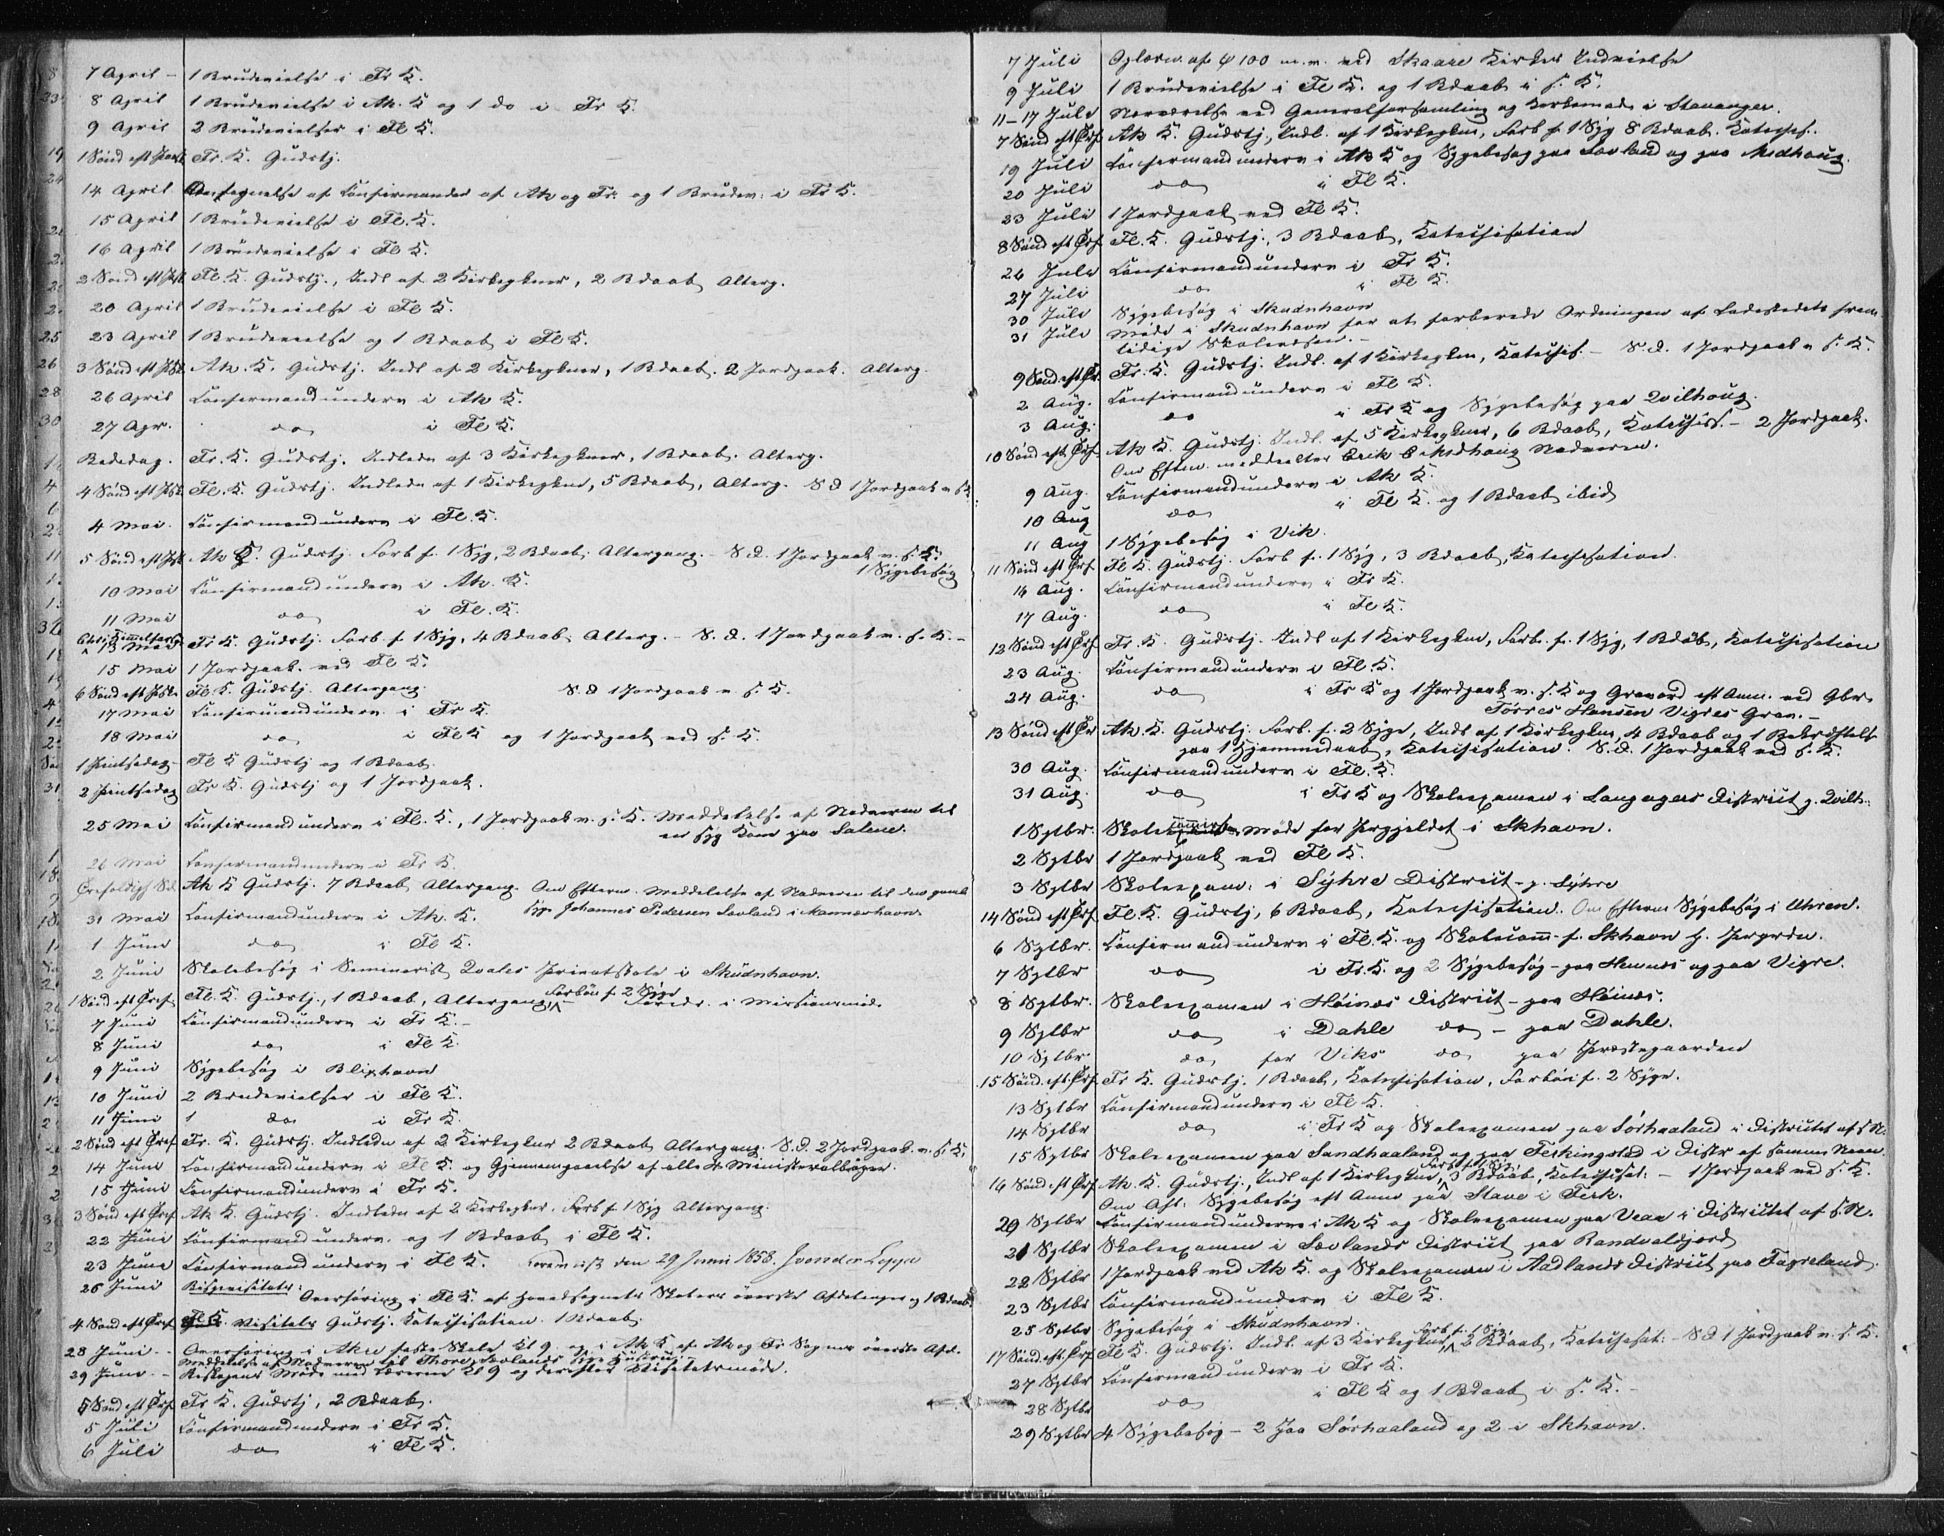 7 April - 1 Brudevielse i Fr K.
8 April 1 Brudevielse i Ak. K og 1 do i Fr K.
9 April 2 Brudevielser i Fl K.
1 Sønd eft Paask Fr. K. Gudstj.
14 April Antegnelse af Confirmander af Ak og Fr. og 1 Brudev: i Fr K.
15 April 1 Brudevielse i Fl. K.
16 April 1 Brudevielse i Fl K.
2 Sønd eft Psk Fl. K. Gudstj., Indl af 2 Kirkegkner, 2 Bdaab, Alterg.
20 April 1 Brudevielse i Fl K.
23 April 1 Brudevielse og 1 Bdaab i Fl K.
3 Sønd eft Psk Ak. K. Gudstj. Indl af 2 Kirkegkner, 1 Bdaab. 2 Jordpaak. Alterg.
26 April Confirmandunderv i Ak K.
27 Apr. do i Fl K.
Bededag. Fr. K. Gudstj. Indledn af 3 Kirkegkner, 1 Bdaab. Alterg.
4 Sønd eft Psk Fl. K. Gudstj. Indledn af 1 Kirkegkne, 5 Bdaab, Alterg. S d 1 Jordpaak v s K
4 Mai. Confirmandunderv i Fl. K.
5 Sønd eft Psk Ak K. Gudstj. Forb f. 1 Syg, 2 Bdaab, Altergang. - S. d. 1 Jordpaak v. s. K.
1 Sygebesøg
10 Mai Confirmandunderv i Ak. K.
11 Mai do i Fl. K.
Chri Himmelfart 13 Mai Fr K. Gudstj. Forb f. 1 Syg, 4 Bdaab, Alterg. - S. d. 1 Jordpaak v. s. K. -
15 Mai 1 Jordpaak. ved Fl K.
6 Sønd eft Paske Fl K. Gudstj. Altergang. S d 1 Jordpaak v s. K.
17 Mai Confirmandunderv. i Fr K.
18 Mai do i Fl K og 1 Jordpaak ved s. K.
1 Pintsedag - Fl K Gudstj og 1 Bdaab.
2 Pintsedag Fr K. Gudstj og 1 Jordpaak.
25 Mai Confirmandunderv i Fl. K., 1 Jordpaak v. s. K. Meddelelse af Nadveren til
en syg Kone paa Salene.
26 Mai Confirmandunderv i Fr K.
Trefoldigh Sd. Ak K Gudstj. 7 Bdaab Altergang. Om Efterm. Meddelelse af Nadveren til den gamle
syge Johannes Pedersen Lovland i Mannæshavn.
31 Mai Confirmandunderv i Ak. K.
1 Juni do i Fl K.
2 Juni Skolebesøg i Seminarist Qvales Privatskole i Skudnhavn.
1 Sønd eft Tref. Fl. K. Gudstj., 1 Bdaab, Altergang, Forbøn f. 2 Syge - Foredr. i Missionsmøde.
7 Juni Confirmandunderv i Fr K. -
8 Juni do i Fl K.
9 Juni Sygebesøg i Blixhavn
10 Juni 2 Brudevielser i Fl K.
11 Juni 1 do i Fr K.
2 Sønd eft Tref Fr. K. Gudstj. Indledn af 2 Kirkegkner 2 Bdaab Altergang. S. d. 2 Jordpaak. v. s. K.
14 Juni Confirmandunderv i Fl K. og Gjennemgaaelse af alle 4 Ministerialbøger.
15 Juni Confirmandunderv i Fr K.
3 Sønd eft Tref Ak K. Gudstj. Indledn af 2 Kirkegkner. Forb f 1 Syg Altergang.
22 Juni Confirmandunderv. og 1 Bdaab i Fl K.
23 Juni Confirmandunderv i Fl K. foreviist den 29 Juni 1858. Jvonder Lippe
26 Juni Bispevisitats: Overhøring i Fl K. af Hovedsognets Skolers øverste Afdelinger og 1 Bdaab.
4 Sønd eft Tref Fl K. Visitats Gudstj. Katechisation. 1 Bdaab.
28 Juni. - Overhøring i Akre faste Skole Kl 9 og i Ak K af Ak og Fr Sognes øverste Afdl.
Meddelelse af Nadveren til Thore Lovlands syge Hustru.
29 Juni. - Biskopens Møde med Lærerne Kl 9 og derefter Visitatsmøde.
5 Sønd eft Tref. Fr K. Gudstj, 2 Bdaab.
5 Juli Confirmandunderv i Fr K.
6 Juli do i Fl K.
7 Juli Oplæsn. af ψ 100 m. v. ved Skaare Kirkes Indvielse
9 Juli 1 Brudevielse i Fl K. og 1 Bdaab i s. K.
11-17 Juli Nærværelse ved Generalforsamling og Kirkemøde i Stavanger.
7 Sønd eft Tref Ak K. Gudstj, Indl. af 1 Kirkegkne, Forb f. 1 Syg 8 Bdaab. Katechis.
19 Juli Confirmandunderv i Ak K og Sygebesøg paa Lovland og paa Medhoug.
20 Juli do i Fl K.
23 Juli 1 Jordpaak ved Fl K.
8 Sønd eft Tref. Fl. K. Gudstj., 3 Bdaab, Katechisation
26 Juli Confirmandunderv i Fr K.
27 Juli do i Fl K.
30 Juli Sygebesøg i Skudnhavn
31 Juli Møde i Skudnhavn for at forberede Ordningen af Ladestedets frem
tidige Skolevæsen. -
9 Sønd eft Tr. Fr. K. Gudstj. Indl. af 1 Kirkegkn, Katechis. - S. d. 1 Jordpaak v s. K.
2 Aug. Confirmandunderv i Fl K.
3 Aug. do i Fr K og Sygebesøg paa Qvilhoug.
10 Sønd eft Tref Ak K. Gudstj. Indl. af 5 Kirkegkner, 6 Bdaab, Katechiss. - 2 Jordpaak.
Om Efterm. meddeeltes Erik E Medhoug Nadveren.
9 Aug. Confirmandunderv i Ak K.
10 Aug do i Fl K. og 1 Bdaab ibid
11 Aug 1 Sygebesøg i Vik.
11 Sønd eft Tref. Fl K. Gudstj. Forb f. 1 Syg, 3 Bdaab, Katechisation.
16 Aug. Confirmandunderv i Fr K.
17 Aug. do i Fl K.
12 Sønd eft Tref Fr. K. Gudstj. Indl af 1 Kirkegkne, Forb. f. 1 Syg, 1 Bdab, Katechisation
23 Aug. Confirmandunderv i Fl K.
24 Aug. do i Fr K og 1 Jordpaak v. s. K og Gravord eft Anm. ved Gbr.
Torres Hansen Vigres Grav. -
13 Sønd eft Tr Ak. K. Gudstj. Forb. f. 2 Syge, Indl af 1 Kirkegkn, 4 Bdaab og 1 Bekræftelse
paa 1 Hjemmedaab, Katechisation. S. d. 1 Jordpaak ved s. K.
30 Aug. Confirmandunderv i Fl. K.
31 Aug. do i Fr K og Skoleexamen i Langagers District p. Qvilh:
1 Sptbr. Skolecommiss. møde for Prgjeldet i Skhavn.
2 Sptbr 1 Jordpaak ved Fl K.
3 Sptbr Skoleexam: i Syhre District - p. Syhre
14 Sønd eft Tref Fl. K. Gudstj, 6 Bdaab, Katechisation. Om Efterm Sygebesøg i Uhren.
6 Sptbr. Confirmandunderv i Fl. K. og Skolecom̅. f. Skhavn p. Prgrdn.
7 Sptbr do i Fr. K. og 2 Sygebesøg - paa Hemnes og paa Vigre.
8 Sptbr. Skoleexamen i Høines District - paa Høines.
9 Sptbr do i Dahle do - paa Dahle.
10 Sptbr do for Viks do paa Præstegaarden
15 Sønd. eft Tref. Fr K. Gudstj. 1 Bdaab, Katechisation, Forbøn f. 2 Syge.
13 Sptbr Confirmandunderv i Fl K.
14 Sptbr do i Fr K og Skoleexamen paa Sørhaaland i Districtet af s N.
15 Sptbr Skoleexamen paa Sandhaaland og paa Ferkingstad i Distr af samme Navn.
16 Sønd eft Tref. Ak. K. Gudstj, Indl af 1 Kirkegkne, Forb f 1 Syg, 3 Bdaab, Katechisat: - 1 Jordpaak ved s. K
Om Aft. Sygebesøg eft Anm paa Stave i Ferk.
20 Sptbr Confirmandunderv i Ak K og Skoleexamen paa Veae i Districtet af s. N.
21 Sptbr Skoleexamen i Sævlands District paa Bandvaldjord
22 Sptbr 1 Jordpaak ved Ak K. og Skoleexamen i Aadlands District paa Fagreland.
23 Sptbr Confirmandunderv i Fl K.
25 Sptbr Sygebesøg i Skudnhavn.
17 Sønd. eft. Tref Fl K. Gudstj. Indl. af 3 Kirkegkner, Forb f. 1 Syg, 2 Bdaab, Katechisat: - S d 1 Jordpaak v. s. K.
27 Sptbr Confirmandunderv i Fr K.
28 Sptbr do i Fl K og 1 Bdaab i s. K. -
29 Sptbr 4 Sygebesøg - 2 paa Sørhaaland og 2 i Skhavn.